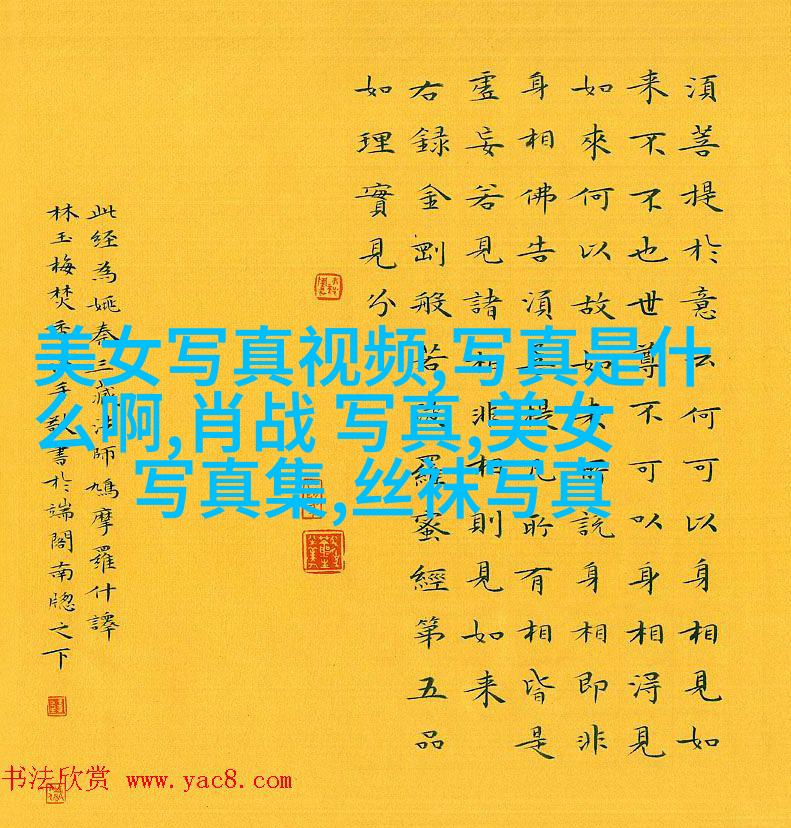 須菩提於意云何可以身相見如
来不不也世尊不可以身相得見
如來何以故如来所説身相即非
身相佛告須菩提凡所有相皆是
虚妄若見諸相非相則見如来
右録金剛般若波羅蜜經第五品
如理實見分
此経為姚秦三藏法師鳩摩羅什譯
林玉梅焚香手敬書於端閣南牕之下
美女写真视频,写真是什
么啊,肖战 写真,美女
写真集,丝袜写真
书法欣赏 www.yac8.com